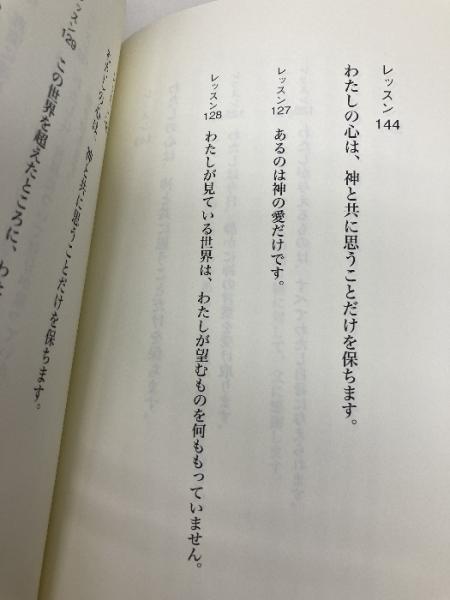 レッスン 144
わたしの心は、神と共に思うことだけを保ちます。
レッスン 127
あるのは神の愛だけです。
レッスン 128
わたしが見ている世界は、わたしが望むものを何ももっていません。
神と共に思うことだけを保ちます。
レッスン 129
この世界を超えたところに、わた